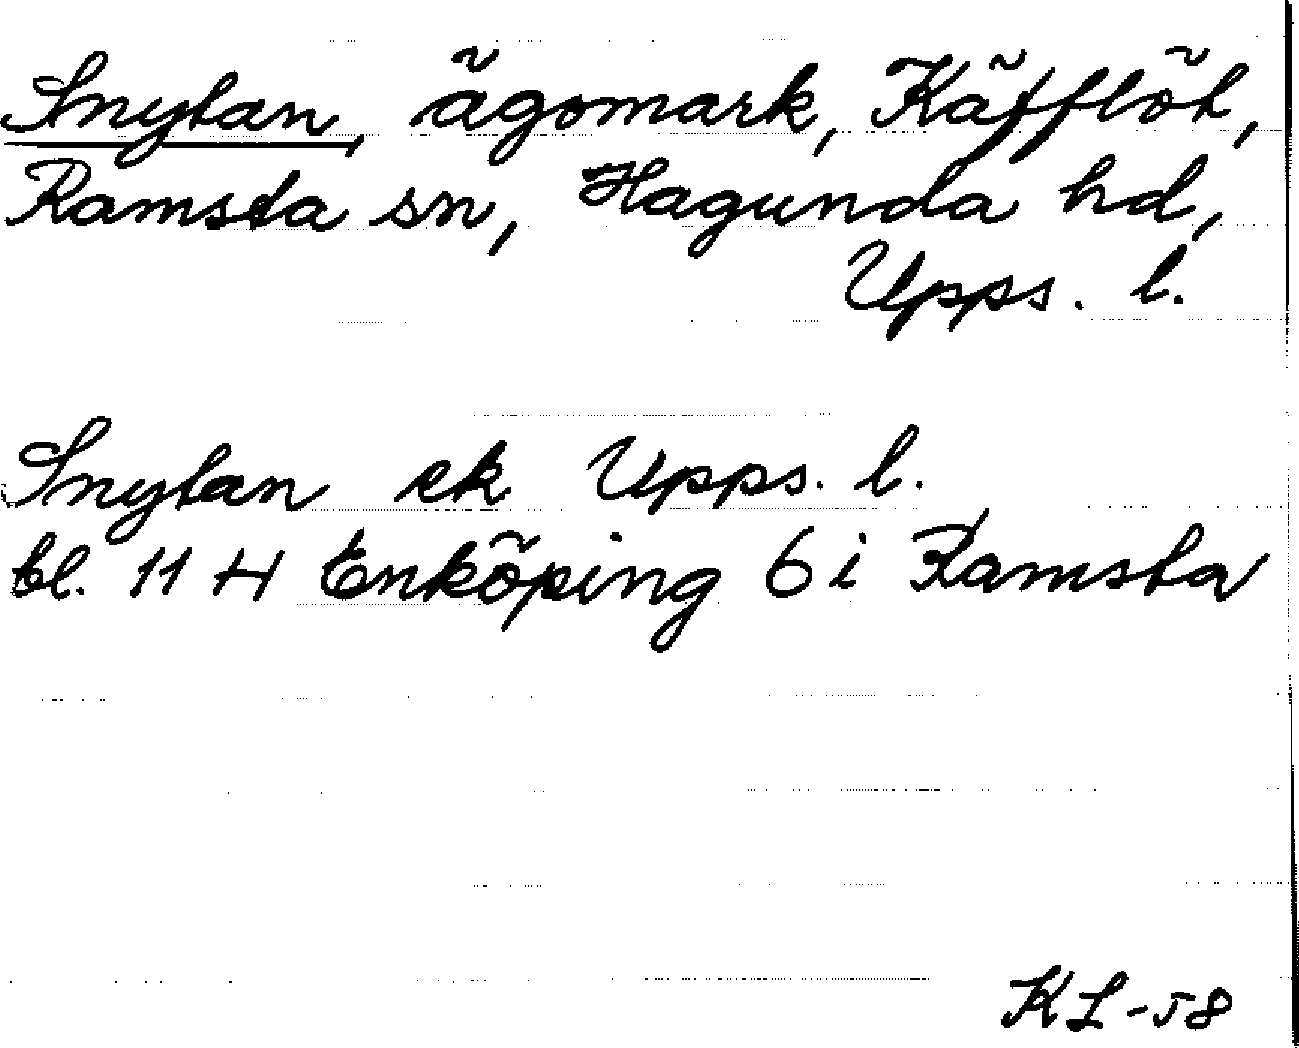 Snytan, ägomark, Käfflöt,
Ramsta sn, Hagunda hd,
Upps. l.
Snytan ek Upps. l.
bl. 11 H Enköping 6 i Ramsta
KL-58